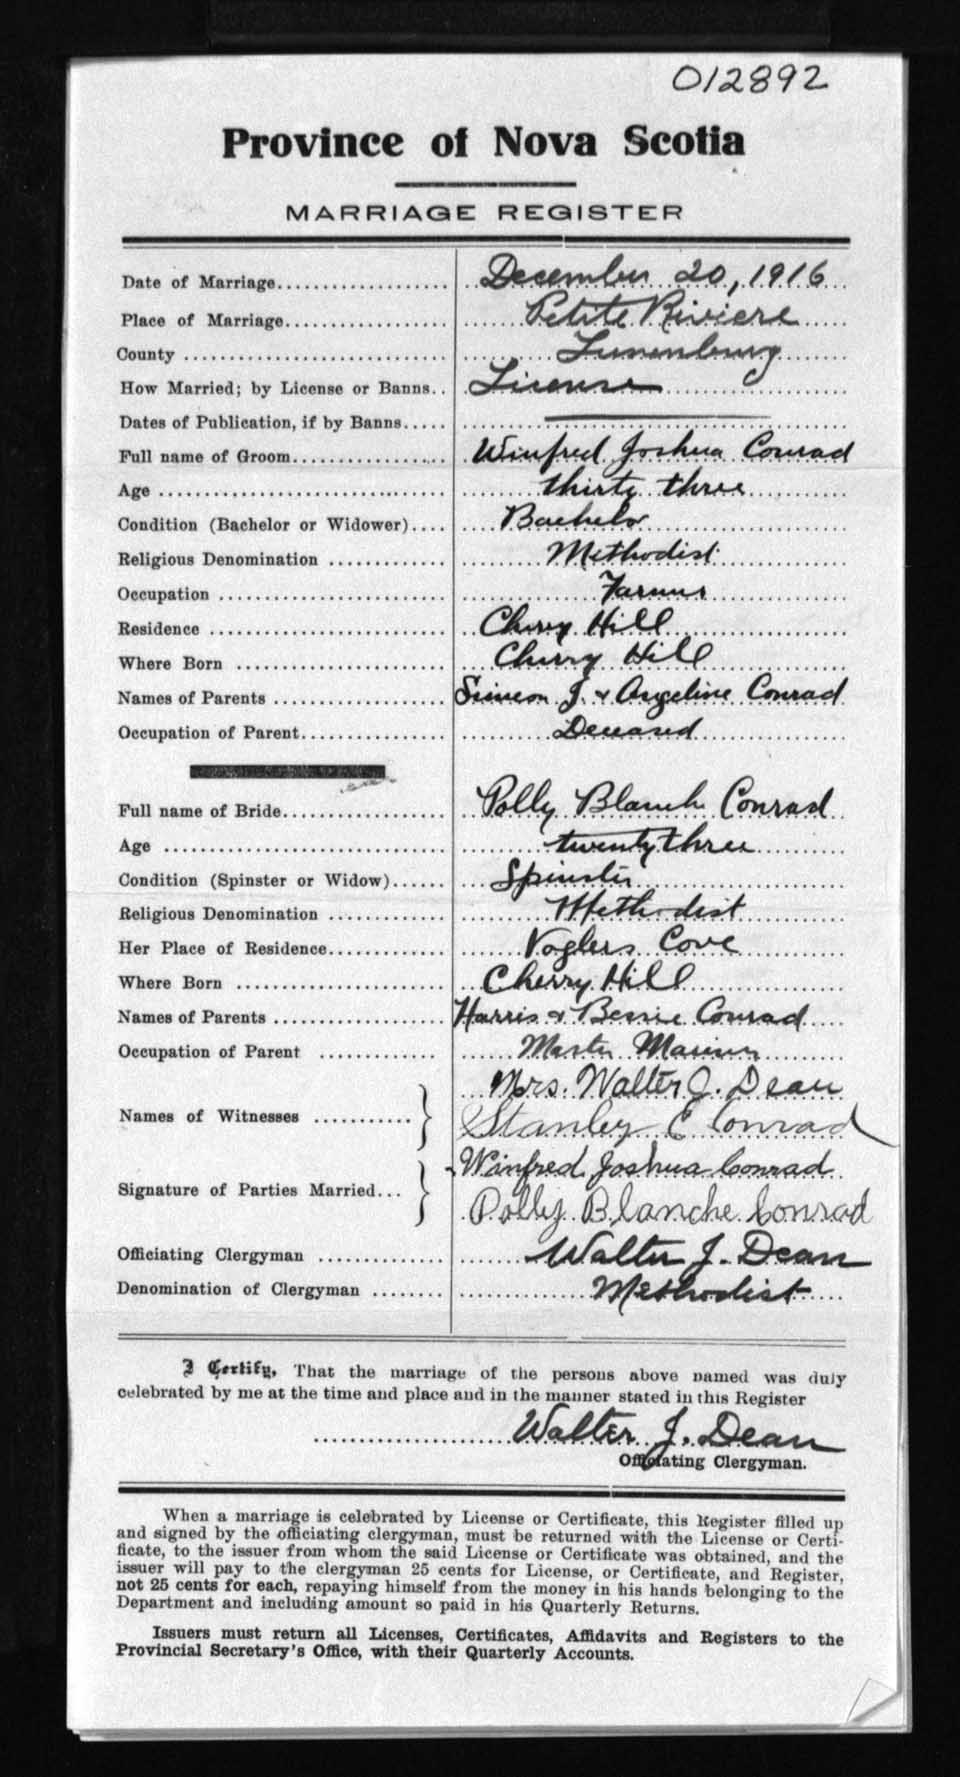 012892
Province of Nova Scotia
MARRIAGE REGISTER
Date of Marriage.................... December 20, 1916
Place of Marriage.................. Petite Riviere
County ............................ Lunenburg
How Married; by License or Banns.. License
Dates of Publication, if by Banns.....
Full name of Groom.................. Winfred Joshua Conrad
Age .............................. thirty three
Condition (Bachelor or Widower).... Bachelor
Religious Denomination ............. Methodist
Occupation ......................... Farmer
Residence .......................... Cherry Hill
Where Born ....................... Cherry Hill
Names of Parents ................... Simeon J. & Angeline Conrad
Occupation of Parent................ Deceased
Full name of Bride.................. Polly Blanch Conrad
Age .............................. twenty three
Condition (Spinster or Widow)...... Spinster
Religious Denomination ............. Methodist
Her Place of Residence............. Voglers Cove
Where Born ....................... Cherry Hill
Names of Parents ................... Harris & Bessie Conrad
Occupation of Parent ............. Master Mariner
Names of Witnesses ........... Mrs. Walter J. Dean
Stanley E Conrad
Signature of Parties Married... Winfred Joshua Conrad
Polly Blanche Conrad
Officiating Clergyman ............. Walter J. Dean
Denomination of Clergyman ........ Methodist
I Certify, That the marriage of the persons above named was duly
celebrated by me at the time and place and in the manner stated in this Register
Walter J. Dean
Officiating Clergyman.
When a marriage is celebrated by License or Certificate, this Register filled up
and signed by the officiating clergyman, must be returned with the License or Certi-
ficate, to the issuer from whom the said License or Certificate was obtained, and the
issuer will pay to the clergyman 25 cents for License, or Certificate, and Register,
not 25 cents for each, repaying himself from the money in his hands belonging to the
Department and including amount so paid in his Quarterly Returns.
Issuers must return all Licenses, Certificates, Affidavits and Registers to the
Provincial Secretary's Office, with their Quarterly Accounts.